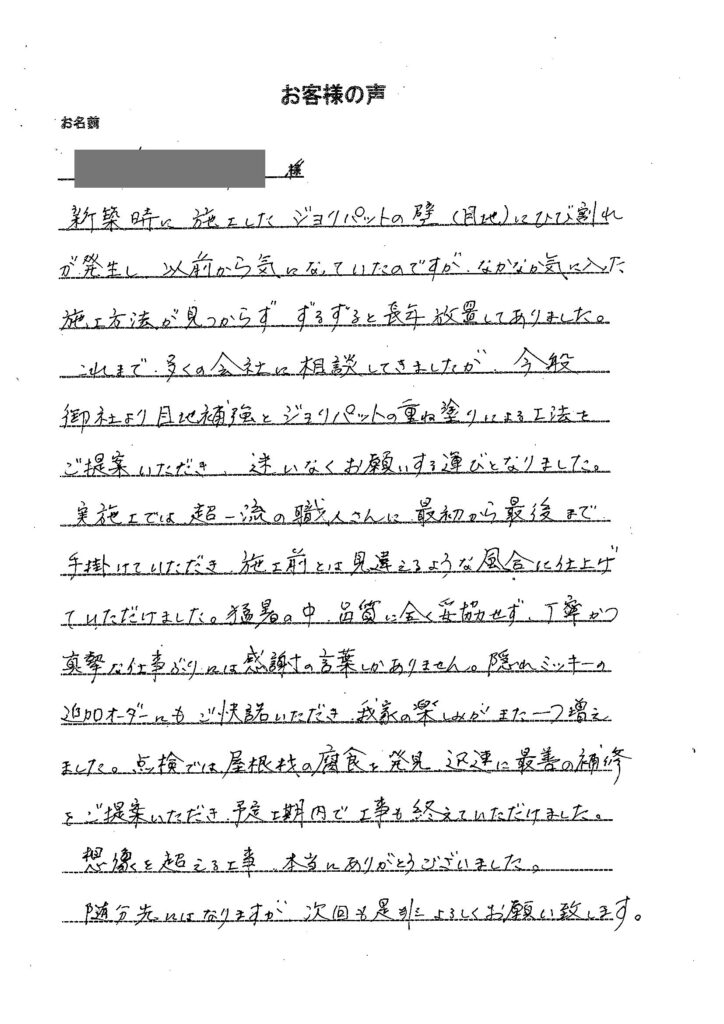 お客様の声
お名前
様
新築時に施工したジョリパットの壁(目地)にひび割れ
が発生し、以前から気になっていたのですが、なかなか気に入った
施工方法が見つからず ずるずると長年放置してありました。
これまで、多くの会社に相談してきましたが、今般
御社より目地補強とジョリパットの重ね塗りによる工法を
ご提案いただき、迷いなくお願いする運びとなりました。
実施工では超一流の職人さんに最初から最後まで
手掛けていただき、施工前とは見違えるような風合に仕上げ
ていただけました。猛暑の中、品質に全く妥協せず、丁寧かつ
真摯な仕事ぶりには感謝の言葉しかありません。隠れミッキーの
追加オーダーにもご快諾いただき、我家の楽しみがまた一つ増え
ました。点検では屋根材の腐食を発見、迅速に最善の補修
をご提案いただき、予定工期内で工事も終えていただけました。
想像を超える工事、本当にありがとうございました。
随分先にはなりますが、次回も是非よろしくお願い致します。